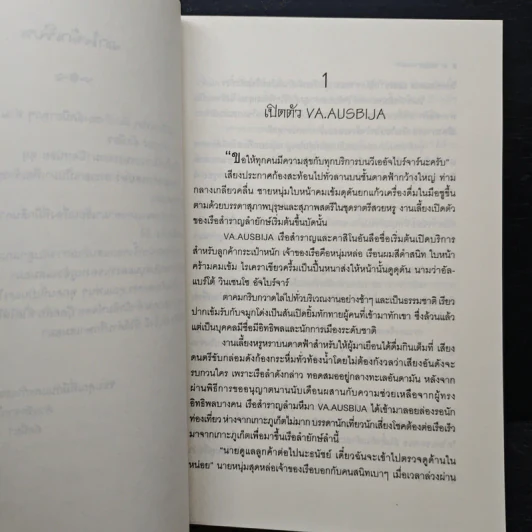 1
เปิดตัว VA.AUSBIJA
"ขอให้ทุกคนมีความสุขกับทุกบริการบนวีเออัจไบร์จาร์นะครับ"
เสียงประกาศก้องสะท้อนไปทั่วลานบนชั้นดาดฟ้ากว้างใหญ่ ท่าม
กลางเกลียวคลื่น ชายหนุ่มใบหน้าคมเข้มดุดันยกแก้วเครื่องดื่มในมือชูขึ้น
ตามด้วยบรรดาสุภาพบุรุษและสุภาพสตรีในชุดราตรีสวยหรู งานเลี้ยงเปิดตัว
ของเรือสำราญลำยักษ์เริ่มต้นขึ้นบัดนั้น
VA.AUSBIJA เรือสำราญและคาสิโนอันลือชื่อเริ่มต้นเปิดบริการ
สำหรับลูกค้ากระเป๋าหนัก เจ้าของเรือคือหนุ่มหล่อ เรือนผมสีดำสนิท ใบหน้า
คร้ามคมเข้ม ไรเคราเขียวครึ้มเป็นปื้นหนาส่งให้หน้านั้นดูดุดัน นามว่าอัล-
แบร์โต้ วินเซนโซ อัจไบร์จาร์
ตาคมกริบกวาดไล่ไปทั่วบริเวณงานอย่างช้าๆ และเป็นธรรมชาติ เรียว
ปากเข้มรับกับจมูกโด่งเป็นสันเปิดยิ้มทักทายผู้คนที่เข้ามาทักเขา ซึ่งล้วนแล้ว
แต่เป็นบุคคลมีชื่อมีอิทธิพลและนักการเมืองระดับชาติ
งานเลี้ยงหรูหราบนดาดฟ้าสำหรับให้ผู้มาเยือนได้ดื่มกินเต็มที่ เสียง
ดนตรีขับกล่อมดังก้องกระหึ่มทั่วท้องน้ำโดยไม่ต้องกังวลว่าเสียงอันดังจะ
รบกวนใคร เพราะเรือลำดังกล่าว ทอดสมออยู่กลางทะเลอันดามัน หลังจาก
ผ่านพิธีการขออนุญาตนานนับเดือนผสานกับความช่วยเหลือจากผู้ทรง
อิทธิพลบางคน เรือสำราญลำมหึมา VA.AUSBIJA ได้เข้ามาลอยล่องรอนัก
ท่องเที่ยว ห่างจากเกาะภูเก็ตไม่มาก บรรดานักเที่ยวนักเสี่ยงโชคต้องต่อเรือเร็ว
มาจากเกาะภูเก็ตเพื่อมาขึ้นเรือลำยักษ์ลำนี้
"นายดูแลลูกค้าต่อไปนะธนัชย์ เดี๋ยวฉันจะเข้าไปตรวจดูด้านใน
หน่อย" นายหนุ่มสุดหล่อเจ้าของเรือบอกกับคนสนิทเบาๆ เมื่อเวลาล่วงผ่าน